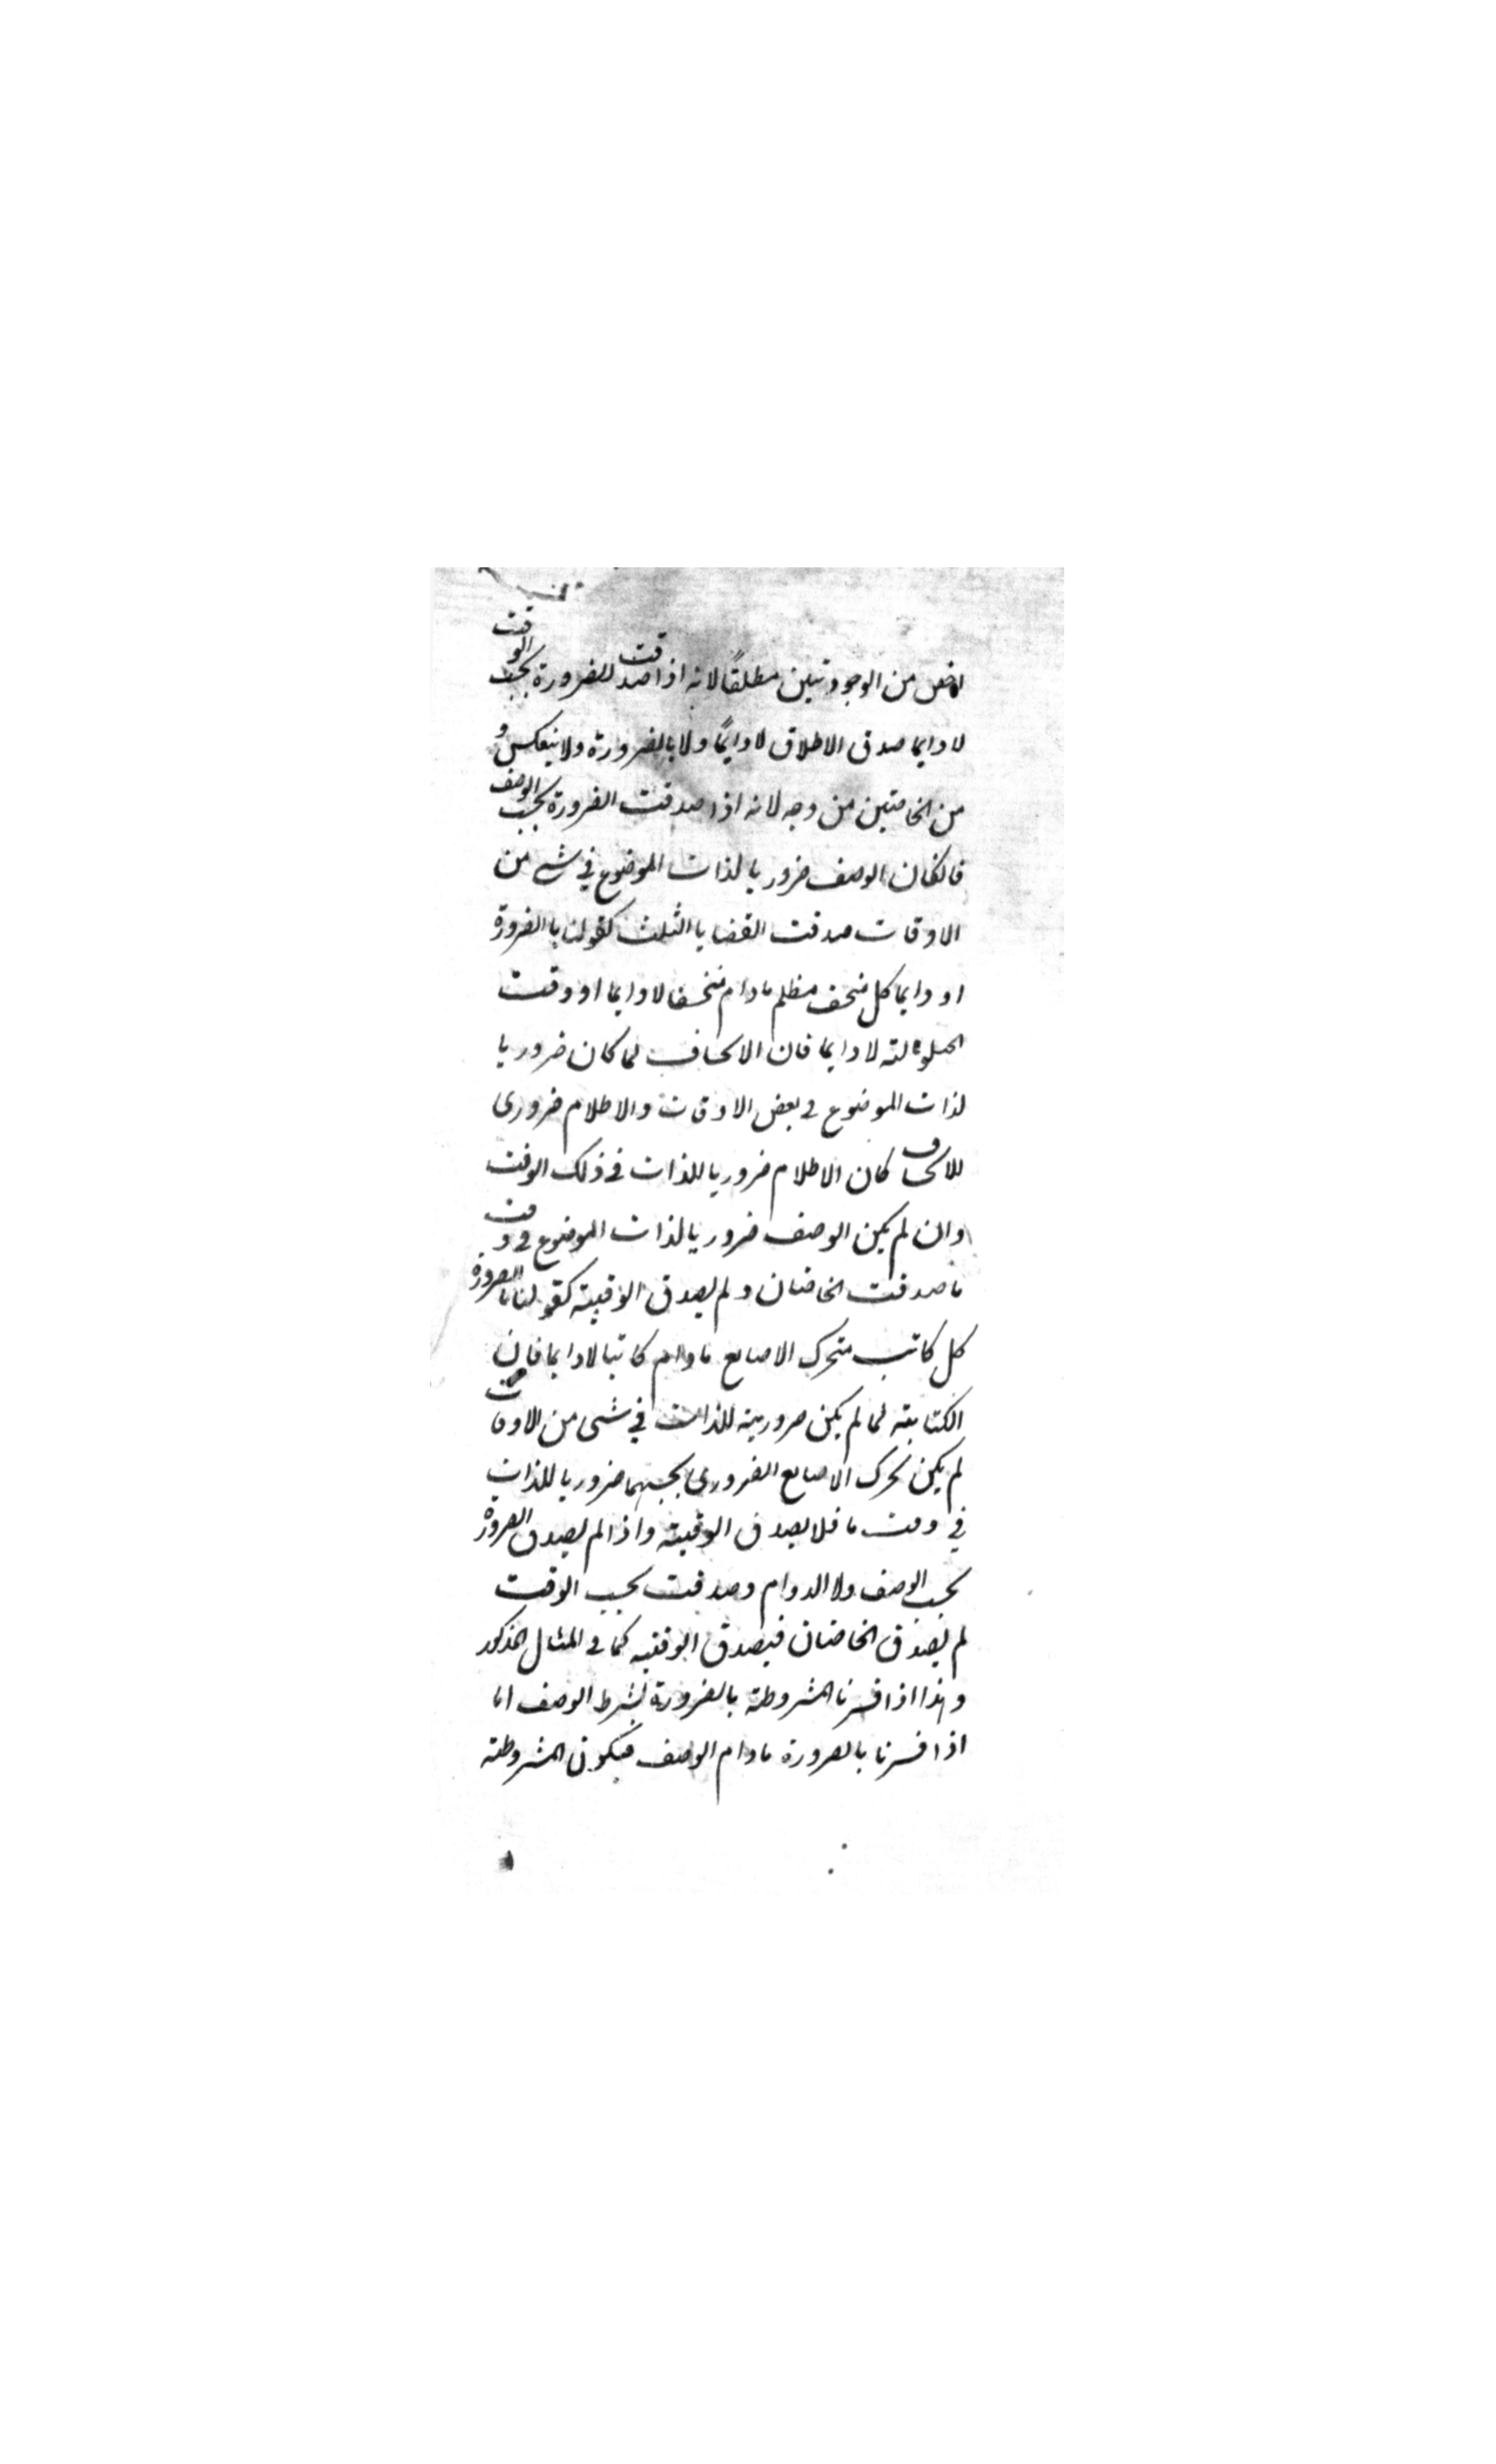 اخص من الوجوديتين مطلقًا لانه اذا صدقت الضرورة بحسب الوقت
لا دايما صدق الاطلاق لا دايمًا ولا بالضرورة ولا ينعكس و
من الخاصتين من وجه لانه اذا صدقت الضرورة بحسب الوصف
فانكان الوصف ضروريا لذات الموضوع في شي من
الاوقات صدقت القضايا الثلث كقولنا بالضرورة
او دايما كل منخسف مظلم مادام منخسفا لا دايما او وقت
الحيلولة لا دايما فان الانخساف لما كان ضروريا
لذات الموضوع في بعض الاوقات والاظلام ضروري
للانخساف كان الاظلام ضروريا للذات في ذلك الوقت
وان لم يكن الوصف ضروريا لذات الموضوع في وقت
ما صدقت الخاصتان ولم يصدق الوقتية كقولنا بالضرورة
كل كاتب متحرك الاصابع مادام كاتبا لا دايما فان
الكتابة لما لم يكن ضرورية للذات في شي من الاوقات
لم يكن تحرك الاصابع الضروري بحسبها ضروريا للذات
في وقت ما فلا يصدق الوقتية واذا لم يصدق الضرورة
بحسب الوصف ولا الدوام وصدقت بحسب الوقت
لم يصدق الخاصتان فيصدق الوقتية كما في المثال المذكور
وهذا اذا فسرنا المشروطة بالضرورة بشرط الوصف اما
اذا فسرنا بالضرورة مادام الوصف فيكون المشروطة